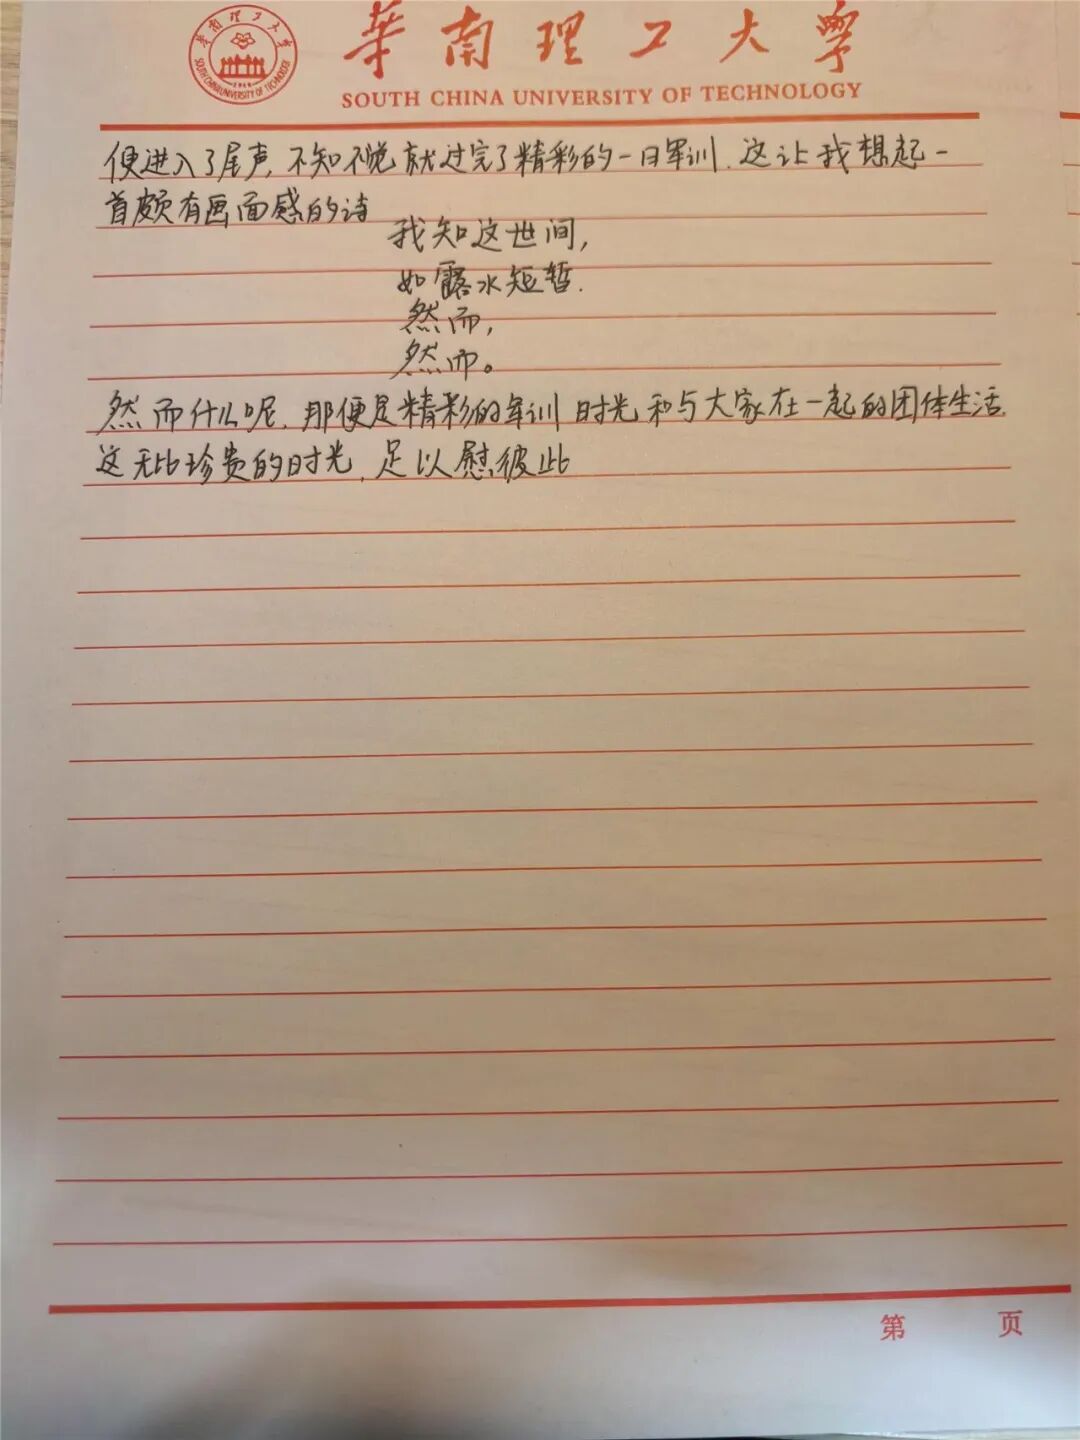 華南理工大學
SOUTH CHINA UNIVERSITY OF TECHNOLOGY
便进入了尾声,不知不觉就过完了精彩的一日军训.这让我想起一
首颇有画面感的诗
我知这世间,
如露水短暂.
然而,
然而。
然而什么呢.那便是精彩的军训时光和与大家在一起的团体生活.
这无比珍贵的时光,足以慰彼此
第 页